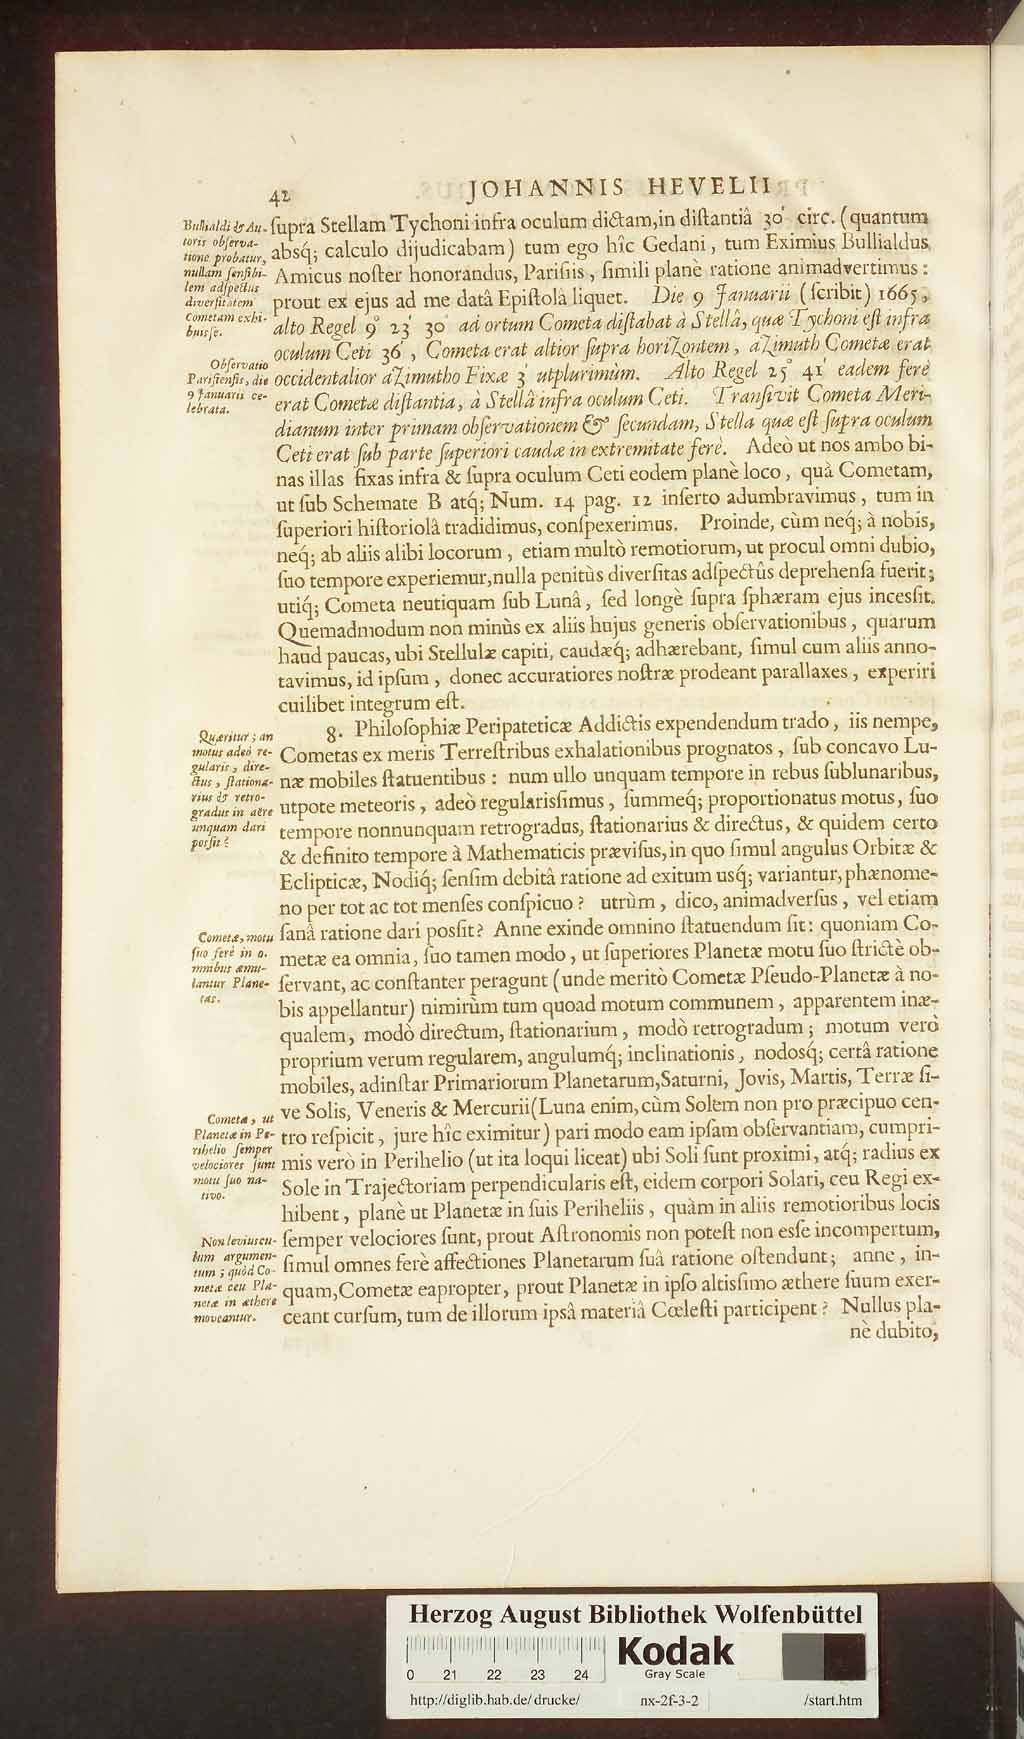 42
JOHANNIS HEVELII
Bullialdi & Au-
toris observa-
tione probatur,
nullam sensibi-
lem adspectus
diversitatem
Cometam exhi-
buisse.
Observatio
Parisiensis, die
9 Januarii ce-
lebrata.
ſupra Stellam Tychoni infra oculum dictam, in diſtantiâ 30′ circ. (quantum
absq́; calculo dijudicabam) tum ego hîc Gedani, tum Eximius Bullialdus,
Amicus noſter honorandus, Pariſiis, ſimili planè ratione animadvertimus:
prout ex ejus ad me datâ Epiſtolâ liquet. Die 9 Januarii (ſcribit) 1665,
alto Regel 9° 23′ 30″ ad ortum Cometa diſtabat à Stellâ, quæ Tychoni eſt infra
oculum Ceti 36′, Cometa erat altior ſupra horizontem, azimuth Cometæ erat
occidentalior azimutho Fixæ 3′ utplurimùm. Alto Regel 25° 41′ eadem ferè
erat Cometæ diſtantia, à Stellâ infra oculum Ceti. Tranſivit Cometa Meri-
dianum inter primam obſervationem & ſecundam, Stella quæ eſt ſupra oculum
Ceti erat ſub parte ſuperiori caudæ in extremitate ferè. Adeò ut nos ambo bi-
nas illas fixas infra & ſupra oculum Ceti eodem planè loco, quà Cometam,
ut ſub Schemate B atq́; Num. 14 pag. 12 inſerto adumbravimus, tum in
ſuperiori hiſtoriolâ tradidimus, conſpexerimus. Proinde, cùm neq́; à nobis,
neq́; ab aliis alibi locorum, etiam multò remotiorum, ut procul omni dubio,
ſuo tempore experiemur, nulla penitùs diverſitas adſpectûs deprehenſa fuerit;
utiq́; Cometa neutiquam ſub Lunâ, ſed longè ſupra ſphæram ejus incesſit.
Quemadmodum non minùs ex aliis hujus generis obſervationibus, quarum
haud paucas, ubi Stellulæ capiti, caudæq́; adhærebant, ſimul cum aliis anno-
tavimus, id ipſum, donec accuratiores noſtræ prodeant parallaxes, experiri
cuilibet integrum eſt.
Quæritur; an
motus adeò re-
gularis, dire-
ctus, ſtationa-
rius & retro-
gradus in aëre
unquam dari
posſit?
8. Philoſophiæ Peripateticæ Addictis expendendum trado, iis nempe,
Cometas ex meris Terreſtribus exhalationibus prognatos, ſub concavo Lu-
næ mobiles ſtatuentibus: num ullo unquam tempore in rebus ſublunaribus,
utpote meteoris, adeò regularisſimus, ſummeq́; proportionatus motus, ſuo
tempore nonnunquam retrogradus, ſtationarius & directus, & quidem certo
& definito tempore à Mathematicis præviſus, in quo ſimul angulus Orbitæ &
Eclipticæ, Nodiq́; ſenſim debitâ ratione ad exitum usq́; variantur, phænome-
no per tot ac tot menſes conſpicuo? utrùm, dico, animadverſus, vel etiam
ſanâ ratione dari posſit? Anne exinde omnino ſtatuendum ſit: quoniam Co-
metæ ea omnia, ſuo tamen modo, ut ſuperiores Planetæ motu ſuo ſtrictè ob-
ſervant, ac conſtanter peragunt (unde meritò Cometæ Pſeudo-Planetæ à no-
bis appellantur) nimirùm tum quoad motum communem, apparentem inæ-
qualem, modò directum, ſtationarium, modò retrogradum; motum verò
proprium verum regularem, angulumq́; inclinationis, nodosq́; certâ ratione
mobiles, adinſtar Primariorum Planetarum, Saturni, Jovis, Martis, Terræ ſi-
ve Solis, Veneris & Mercurii (Luna enim, cùm Solem non pro præcipuo cen-
tro reſpicit, jure hîc eximitur) pari modo eam ipſam obſervantiam, cumpri-
mis verò in Perihelio (ut ita loqui liceat) ubi Soli ſunt proximi, atq́; radius ex
Sole in Trajectoriam perpendicularis eſt, eidem corpori Solari, ceu Regi ex-
hibent, planè ut Planetæ in ſuis Periheliis, quàm in aliis remotioribus locis
ſemper velociores ſunt, prout Aſtronomis non poteſt non esſe incompertum,
ſimul omnes ferè affectiones Planetarum ſuâ ratione oſtendunt; anne, in-
quam, Cometæ eapropter, prout Planetæ in ipſo altisſimo æthere ſuum exer-
ceant curſum, tum de illorum ipsâ materiâ Cœleſti participent? Nullus pla-
nè dubito,
Cometæ, motu
ſuo ferè in o-
mnibus æmu-
lantur Plane-
tas.
Cometæ, ut
Planetæ in Pe-
rihelio ſemper
velociores ſunt
motu ſuo na-
tivo.
Non leviuscu-
lum argumen-
tum; quòd Co-
metæ ceu Pla-
netæ in æthere
moveantur.
Herzog August Bibliothek Wolfenbüttel
0 21 22 23 24
Kodak
Gray Scale
http://diglib.hab.de/drucke/ nx-2f-3-2 /start.htm